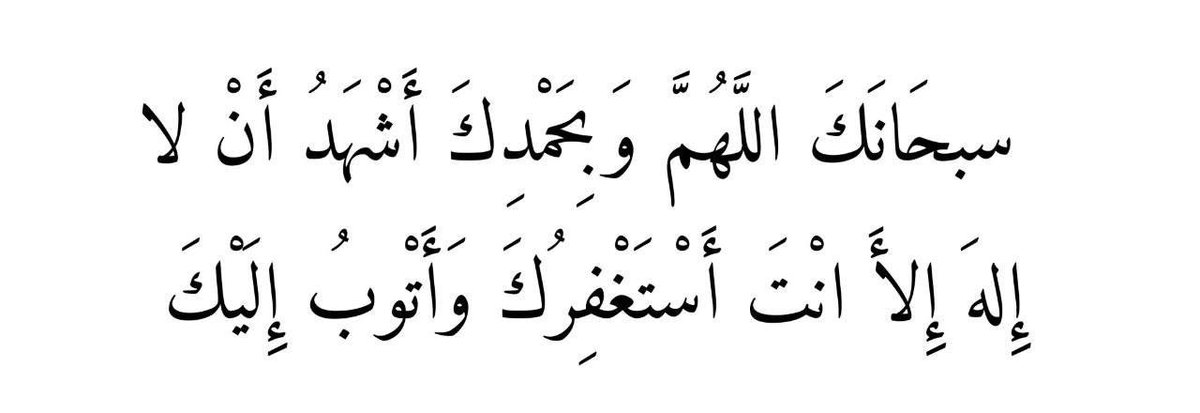 سبحَانَكَ اللَّهُمَّ وَبِحَمْدِكَ أَشْهَدُ أَنْ لا
إِلهَ إِلأَّ انْتَ أَسْتَغْفِرُكَ وَأَتْوبُ إِلَيْكَ